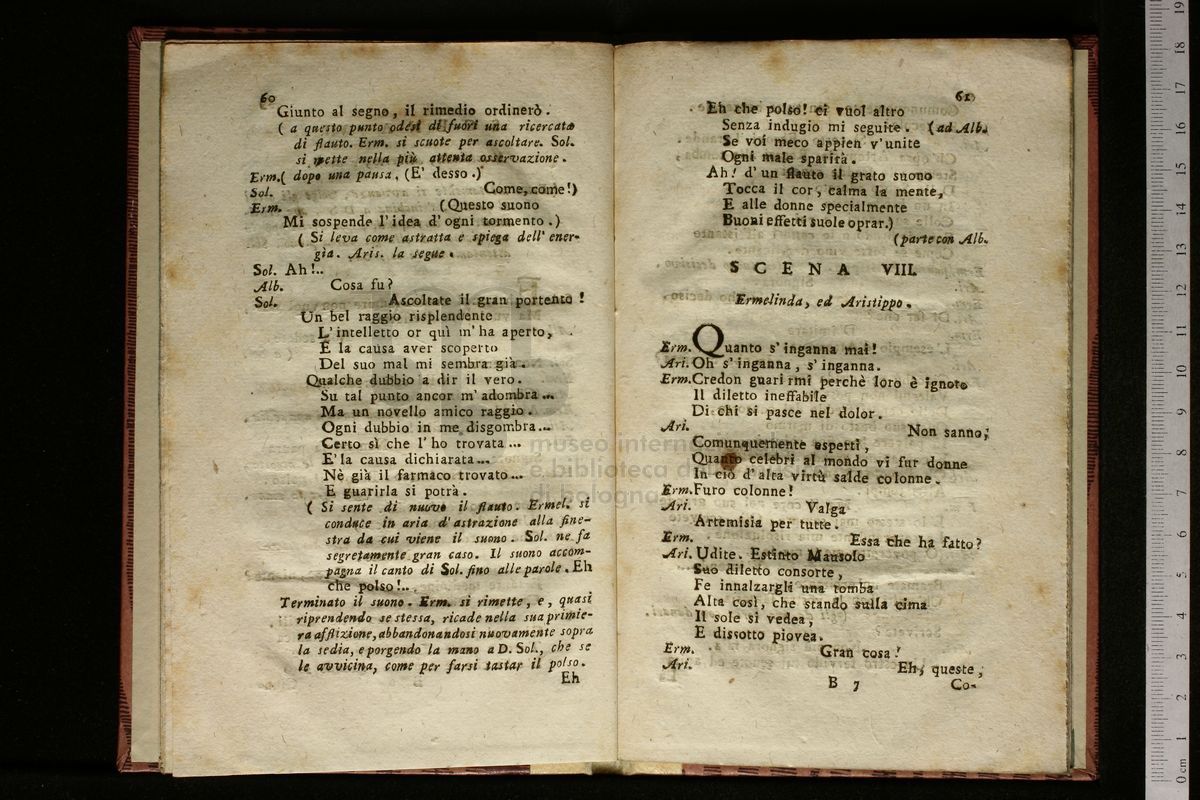 60
Giunto al segno, il rimedio ordinerò.
( a questo punto odesi di fuori una ricercata
di flauto. Erm. si scuote per ascoltare. Sol.
si mette nella più attenta osservazione.
Erm.( dopo una pausa, (E' desso.)
Sol. Come, come!)
Erm. (Questo suono
Mi sospende l'idea d'ogni tormento.)
( Si leva come astratta e spiega dell' ener-
gìa. Aris. la segue.
Sol. Ah!..
Alb. Cosa fu?
Sol. Ascoltate il gran portento!
Un bel raggio risplendente
L'intelletto or quì m'ha aperto,
E la causa aver scoperto
Del suo mal mi sembra già.
Qualche dubbio a dir il vero.
Su tal punto ancor m'adombra...
Ma un novello amico raggio.
Ogni dubbio in me disgombra...
Certo sì che l'ho trovata...
E' la causa dichiarata...
Nè già il farmaco trovato...
E guarirla si potrà.
( Si sente di nuovo il flauto. Ermel. si
conduce in aria d'astrazione alla fine-
stra da cui viene il suono. Sol. ne fa
segretamente gran caso. Il suono accom-
pagna il canto di Sol. fino alle parole. Eh
che polso!..
Terminato il suono. Erm. si rimette, e, quasi
riprendendo se stessa, ricade nella sua primie-
ra afflizione, abbandonandosi nuovamente sopra
la sedia, e porgendo la mano a D. Sol., che se
le avvicina, come per farsi tastar il polso.
Eh
61
Eh che polso! ci vuol altro
Senza indugio mi seguite. (ad Alb.
Se voi meco appien v'unite
Ogni male sparirà.
Ah! d'un flauto il grato suono
Tocca il cor, calma la mente,
E alle donne specialmente
Buoni effetti suole oprar.)
(parte con Alb.
SCENA VIII.
Ermelinda, ed Aristippo.
Erm. Quanto s'inganna mai!
Ari. Oh s'inganna, s'inganna.
Erm. Credon guarirmi perchè loro è ignoto
Il diletto ineffabile
Di chi si pasce nel dolor.
Ari. Non sanno;
Comunquemente esperti,
Quanto celebri al mondo vi fur donne
In ciò d'alta virtù salde colonne.
Erm. Furo colonne!
Ari. Valga
Artemisia per tutte.
Erm. Essa che ha fatto?
Ari. Udite. Estinto Mausolo
Suo diletto consorte,
Fe innalzargli una tomba
Alta così, che stando sulla cima
Il sole si vedea,
E dissotto piovea.
Erm. Gran cosa!
Ari. Eh, queste,
B 7 Co-
museo intern
e biblioteca d
di bologna
0 cm 1 2 3 4 5 6 7 8 9 10 11 12 13 14 15 16 17 18 19